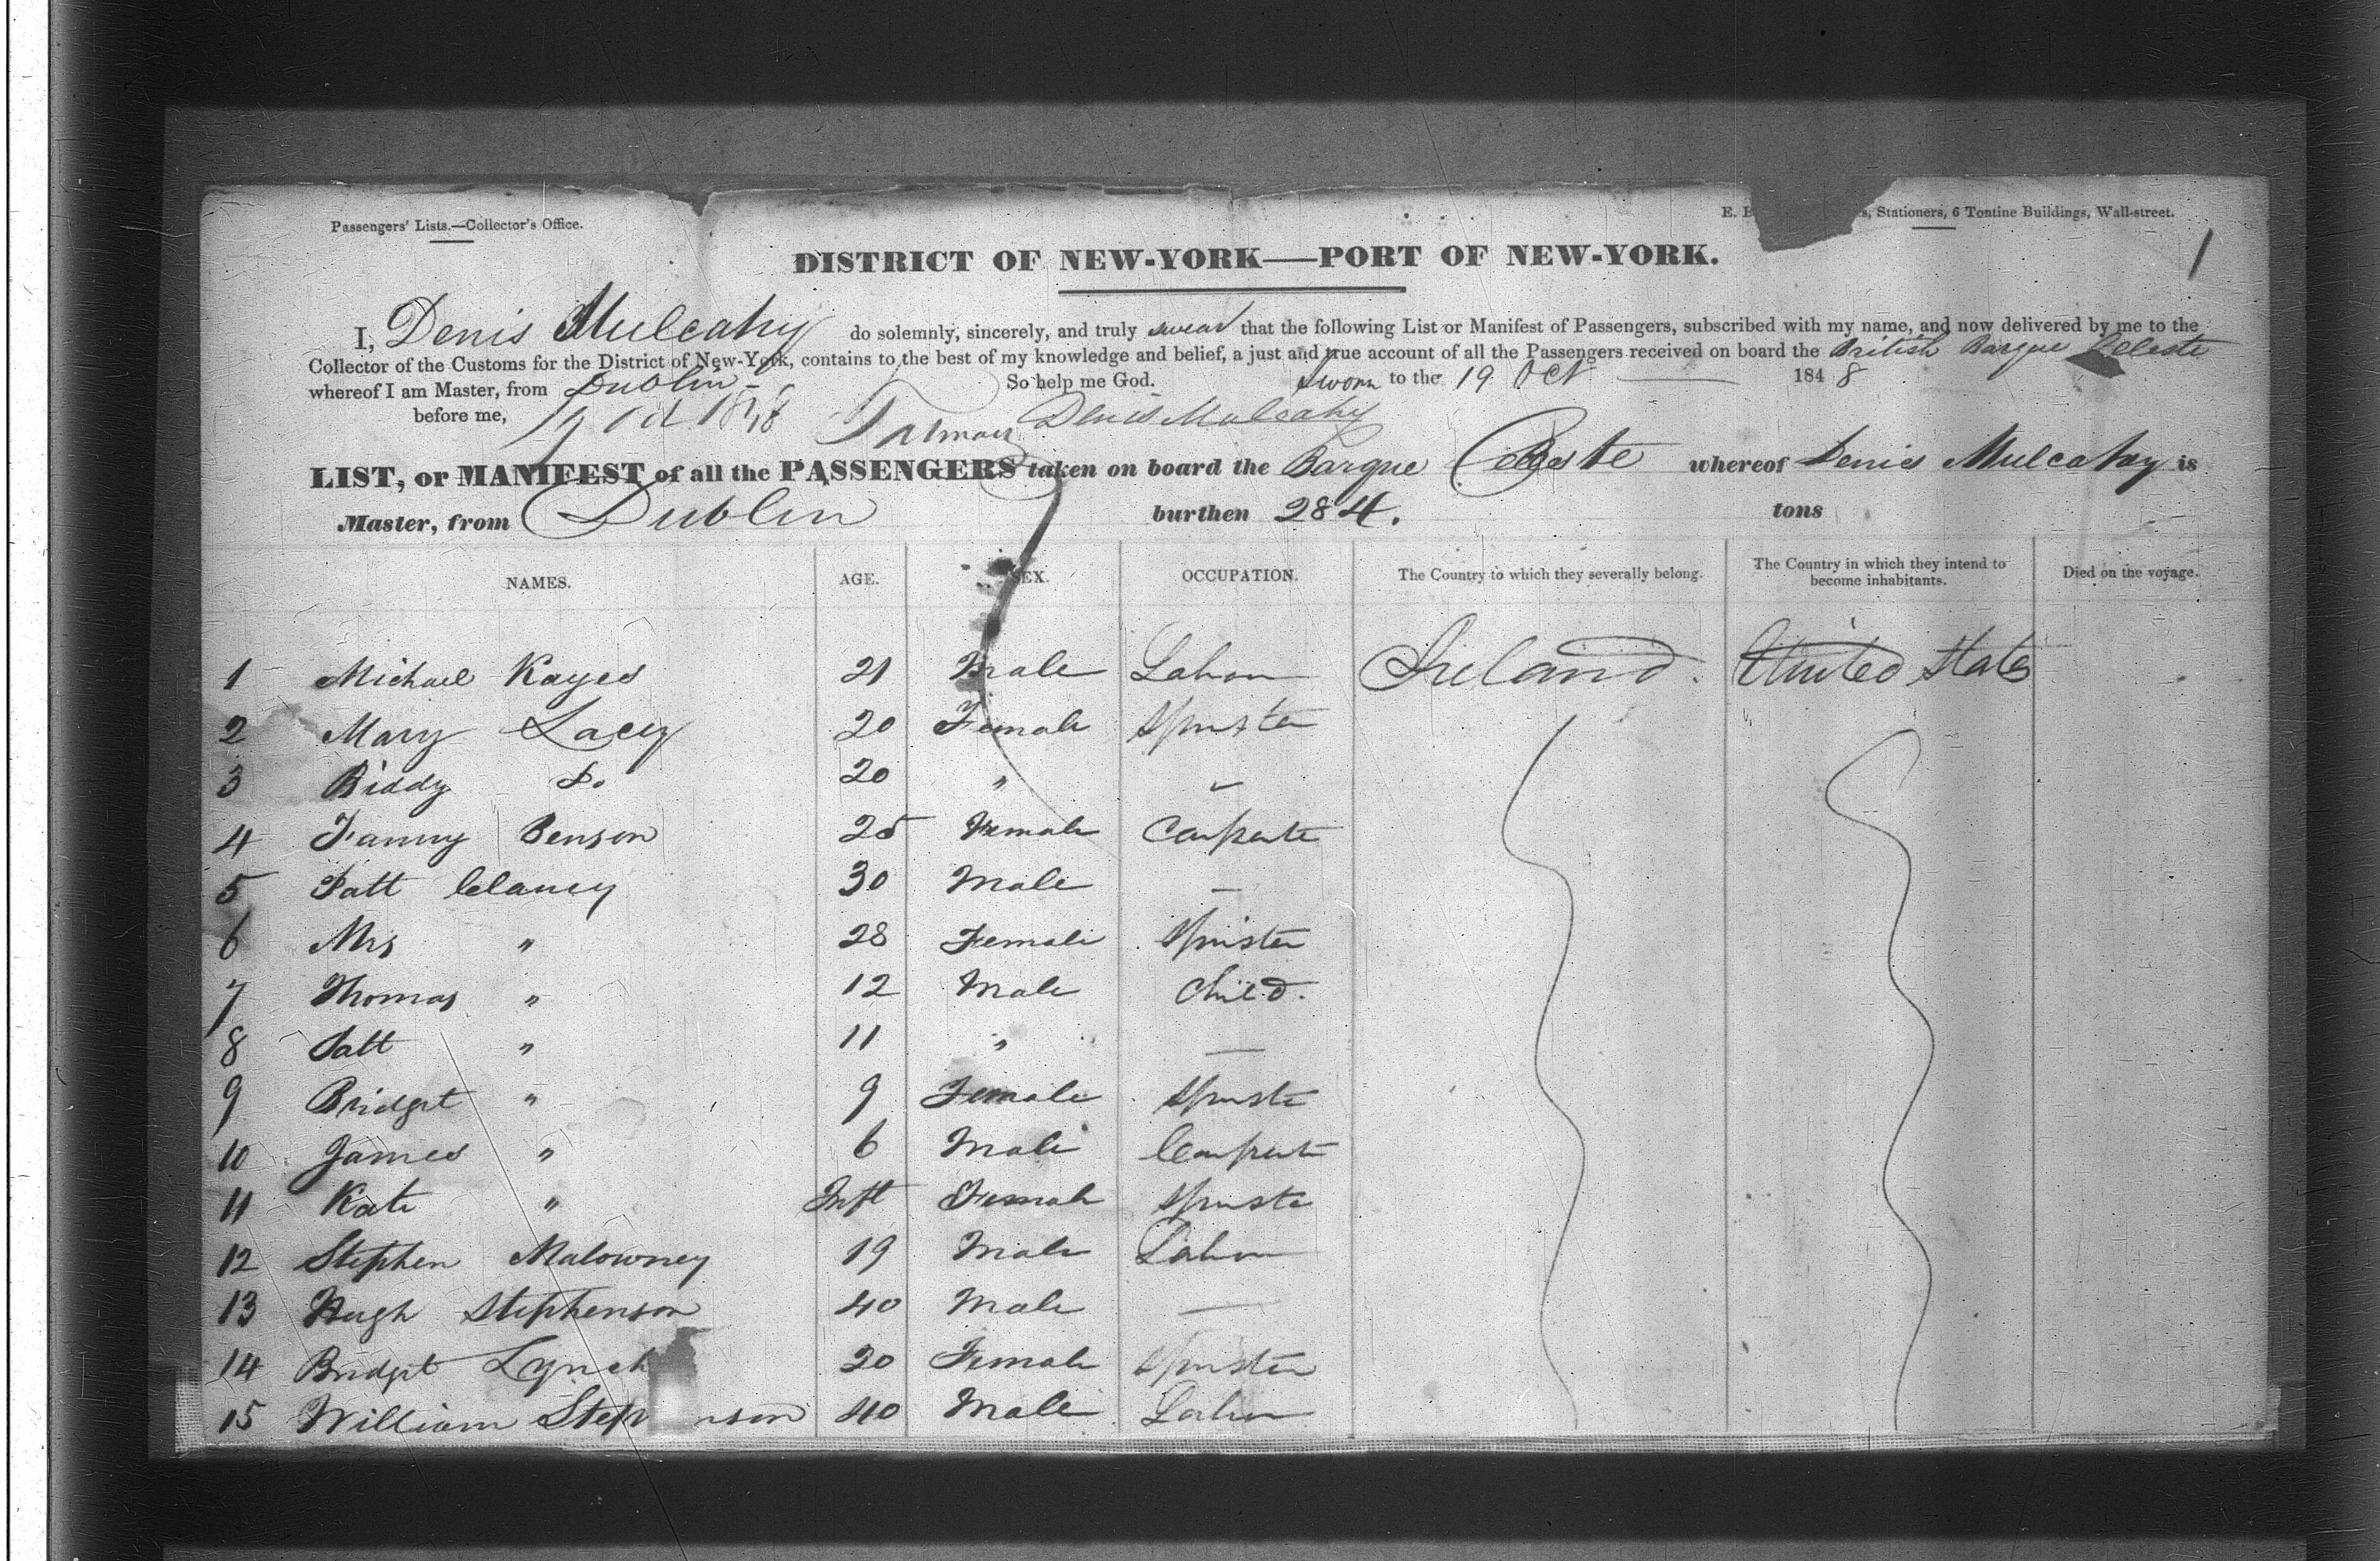 Passengers' Lists.—Collector's Office.
E. B s, Stationers, 6 Tontine Buildings, Wall-street.
1
DISTRICT OF NEW-YORK—PORT OF NEW-YORK.
I, Denis Mulcahy do solemnly, sincerely, and truly swear that the following List or Manifest of Passengers, subscribed with my name, and now delivered by me to the
Collector of the Customs for the District of New-York, contains to the best of my knowledge and belief, a just and true account of all the Passengers received on board the British Barque Celeste
whereof I am Master, from Dublin So help me God. Sworn to the 19 Oct 1848
before me, 19 Oct 1848 Denis Mulcahy
LIST, or MANIFEST of all the PASSENGERS taken on board the Barque Celeste whereof Denis Mulcahy is
Master, from Dublin burthen 284. tons
NAMES. AGE. SEX. OCCUPATION. The Country to which they severally belong. The Country in which they intend to become inhabitants. Died on the voyage.
1 Michael Kayes 21 Male Labour Ireland. United States
2 Mary Lacey 20 Female Spinster
3 Biddy Do 20 " "
4 Fanny Benson 25 Female Carpente
5 Patt Clancy 30 Male —
6 Mrs " 28 Female Spinster
7 Thomas " 12 Male Child.
8 Patt " 11 " —
9 Bridget " 9 Female Spinste
10 James " 6 Male Carpente
11 Kate " Inft Female Spinste
12 Stephen Malowney 19 Male Labour
13 Hugh Stephenson 40 Male —
14 Bridget Lynch 20 Female Spinster
15 William Step nson 40 Male Labour